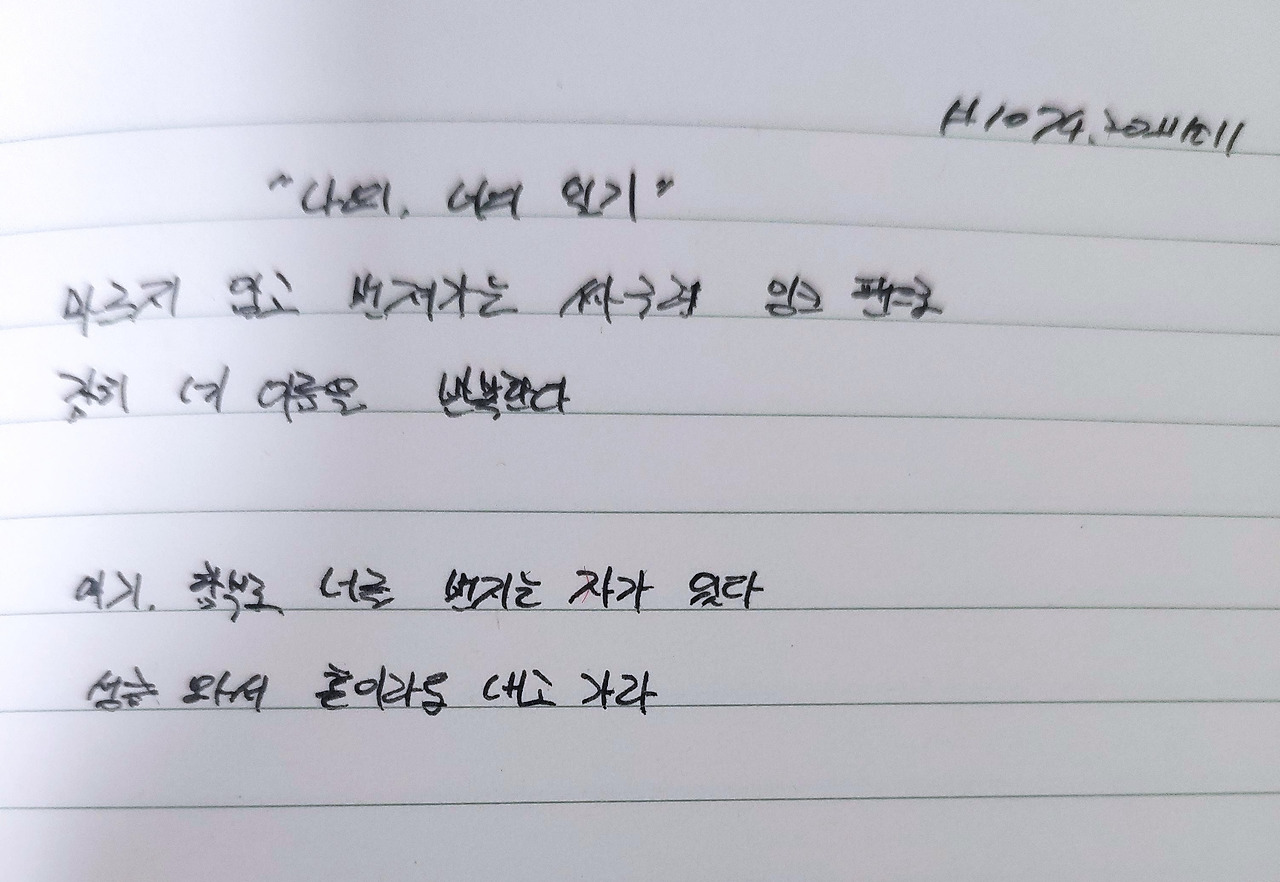 "나의, 너의 일기"
마르지 않고 번져가는 싸구려 잉크 펜으로
네 이름을 반복한다
여기, 함부로 너를 번지는 자가 있다
성큼 와서 혼이라도 내고 가라